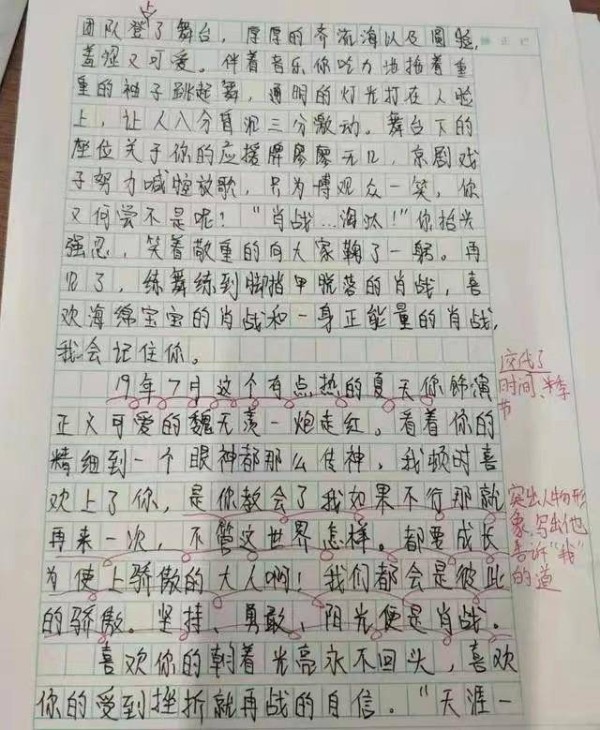 上
团队登了舞台，厚厚的齐流海以及圆脸，
羞涩又可爱。伴着音乐你吃力地抬着重
重的袖子跳起舞，通明的灯光打在人脸
上，让人八分盲沉三分激动。舞台下的
座位关于你的应援牌廖廖无几，京剧戏
子努力喊嗓放歌，只为博观众一笑，你
又何尝不是呢！“肖战...淘汰！”你抬头
强忍，笑着敬重的向大家鞠了一躬。再
见了，练舞练到脚指甲脱落的肖战，喜
欢海绵宝宝的肖战和一身正能量的肖战，
我会记住你。
19年7月这个有点热的夏天你饰演
正义可爱的魏无羡一炮走红。看着你的
精细到一个眼神都那么传神，我顿时喜
欢上了你，是你教会了我如果不行那就
再来一次，不管这世界怎样。都要成长
为使上骄傲的大人啊！我们都会是彼此
的骄傲。坚持、勇敢、阳光便是肖战。
喜欢你的朝着光亮永不回头，喜欢
你的受到挫折就再战的自信。“天涯一
交代了
时间、季
节
突出人物形
象，写出他
告诉“我”
的道